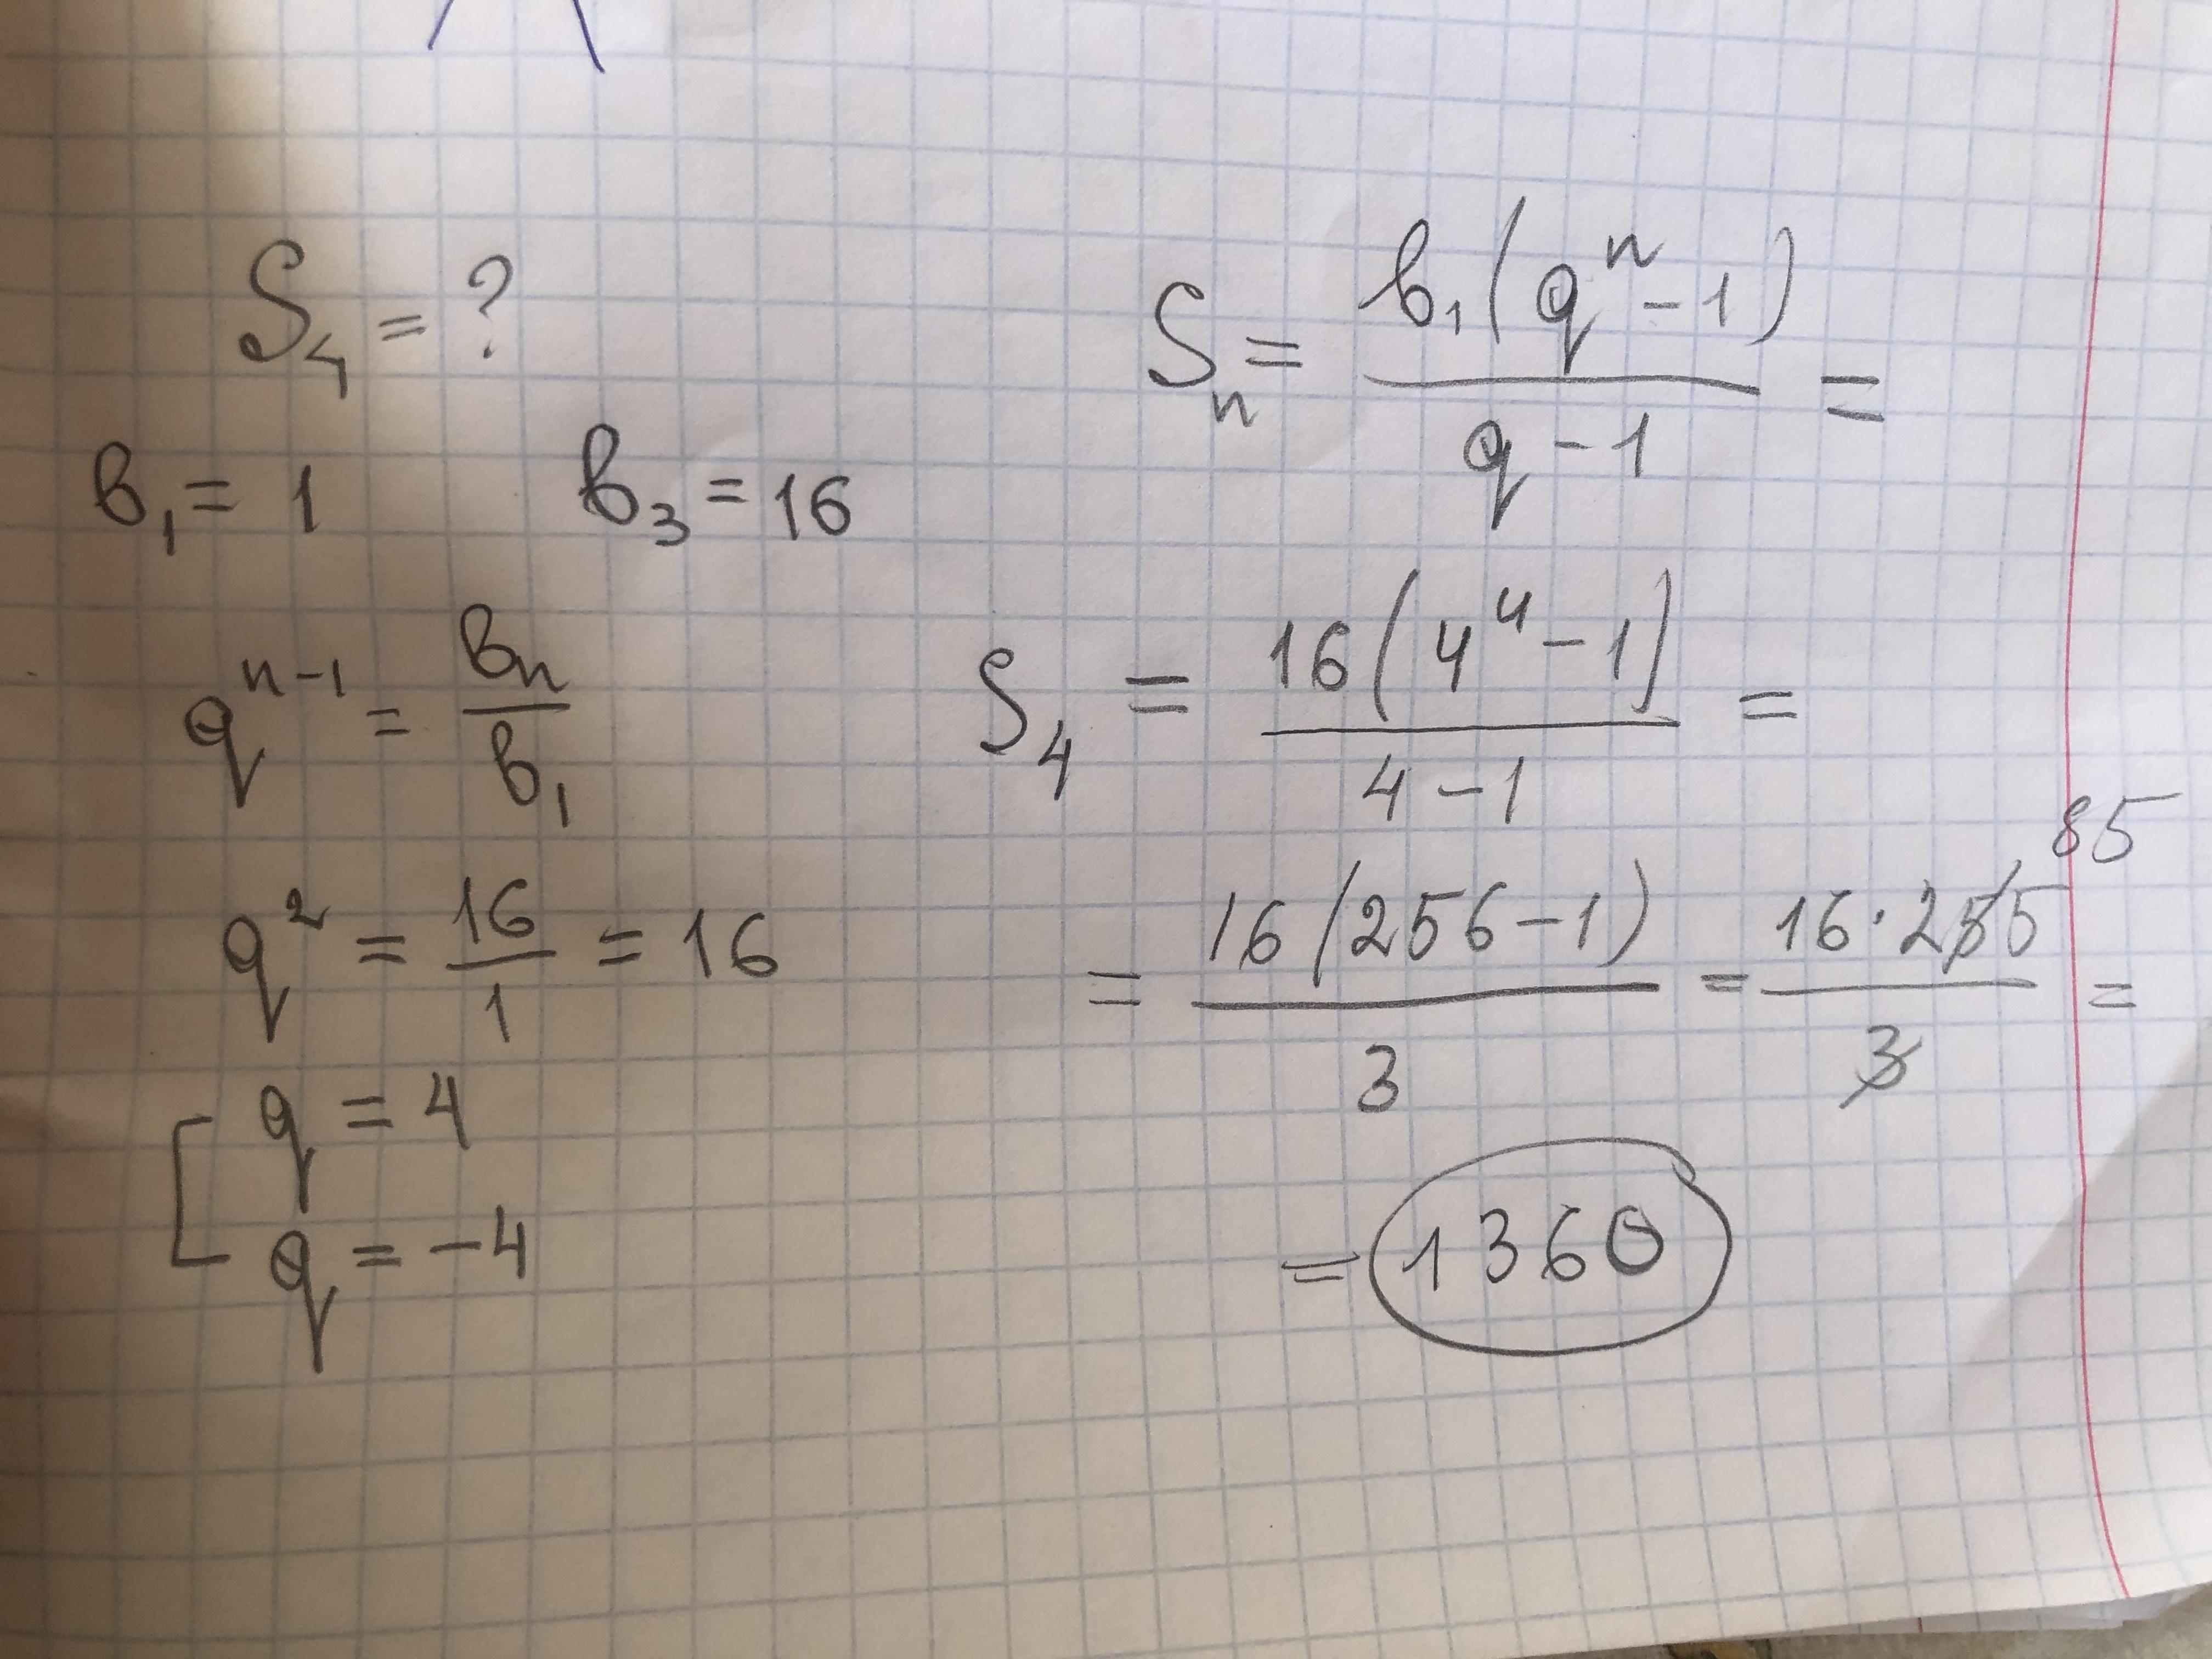 S₄ = ?
в₁ = 1 в₃ = 16
qⁿ⁻¹ = вₙ / в₁
q² = 16/1 = 16
[ q = 4
q = -4
Sₙ = в₁(qⁿ - 1) / (q - 1) =
S₄ = 16(4⁴ - 1) / (4 - 1) =
= 16(256 - 1) / 3 = 16 · 255 / 3 = 85
= 1360